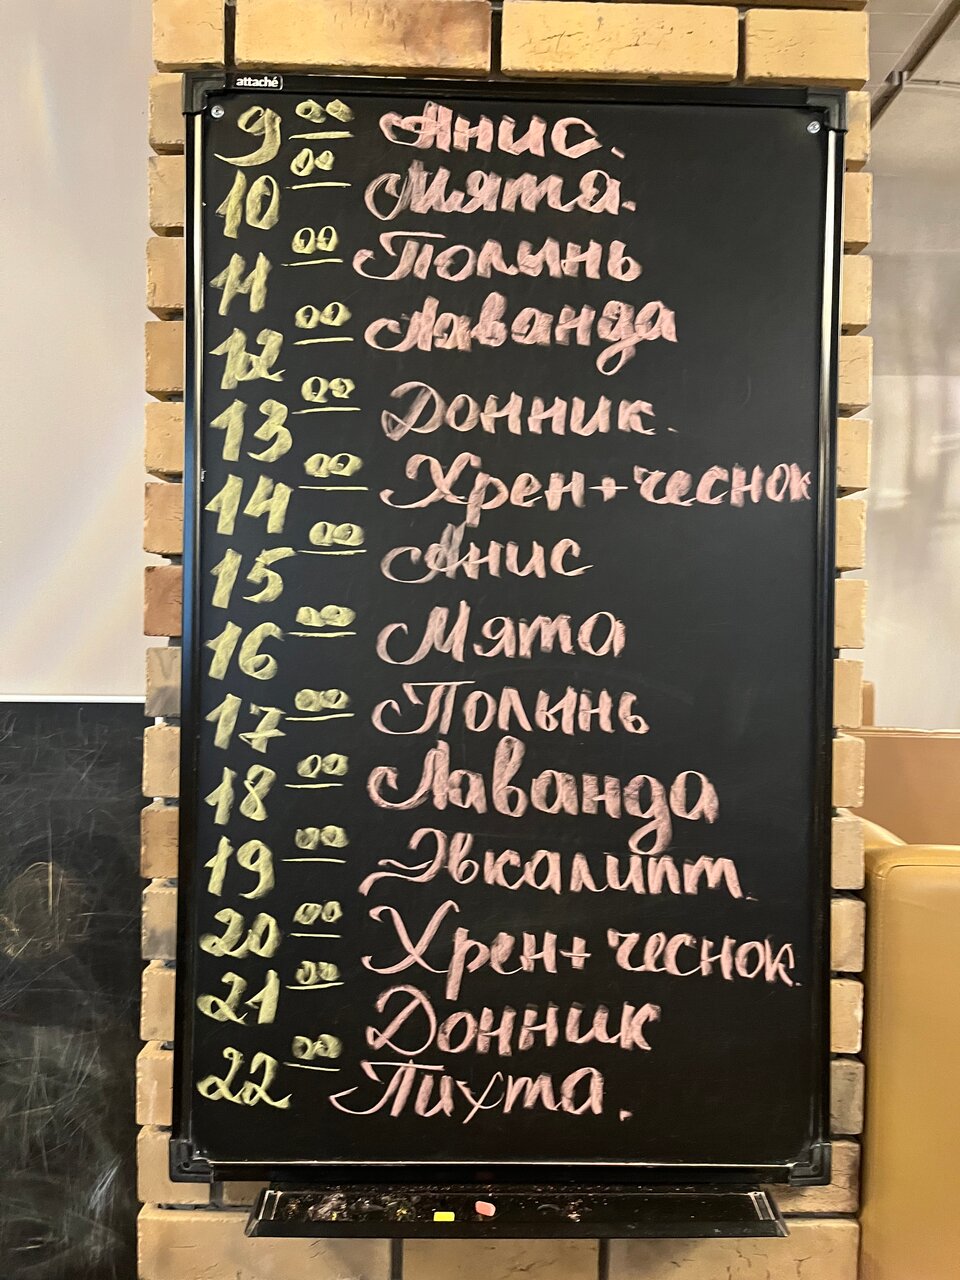 attaché
9⁰⁰ Анис.
10⁰⁰ Мята.
11⁰⁰ Полынь
12⁰⁰ Лаванда
13⁰⁰ Донник.
14⁰⁰ Хрен+чеснок
15⁰⁰ Анис
16⁰⁰ Мята
17⁰⁰ Полынь
18⁰⁰ Лаванда
19⁰⁰ Эвкалипт.
20⁰⁰ Хрен+чеснок.
21⁰⁰ Донник
22⁰⁰ Пихта.